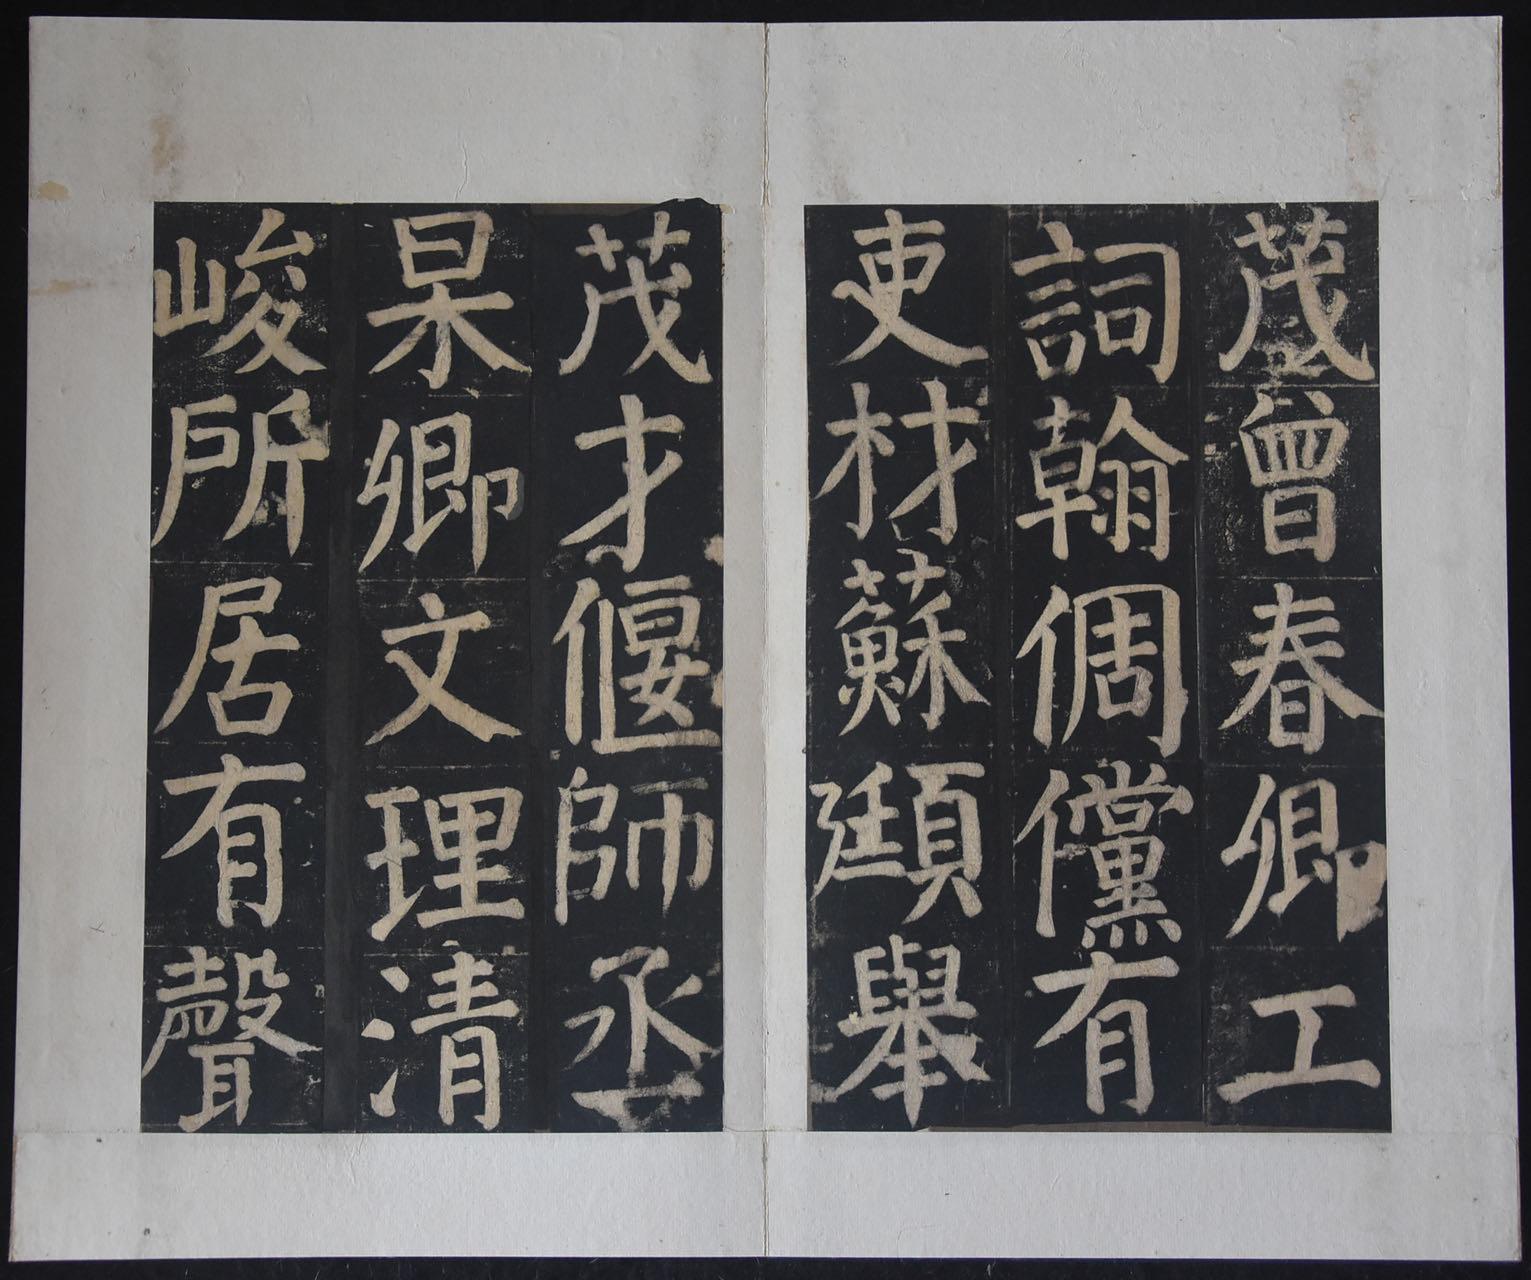 茂曾春卿工
詞翰倜儻有
吏材蘇頲舉
茂才偃師丞
杲卿文理清
峻所居有聲